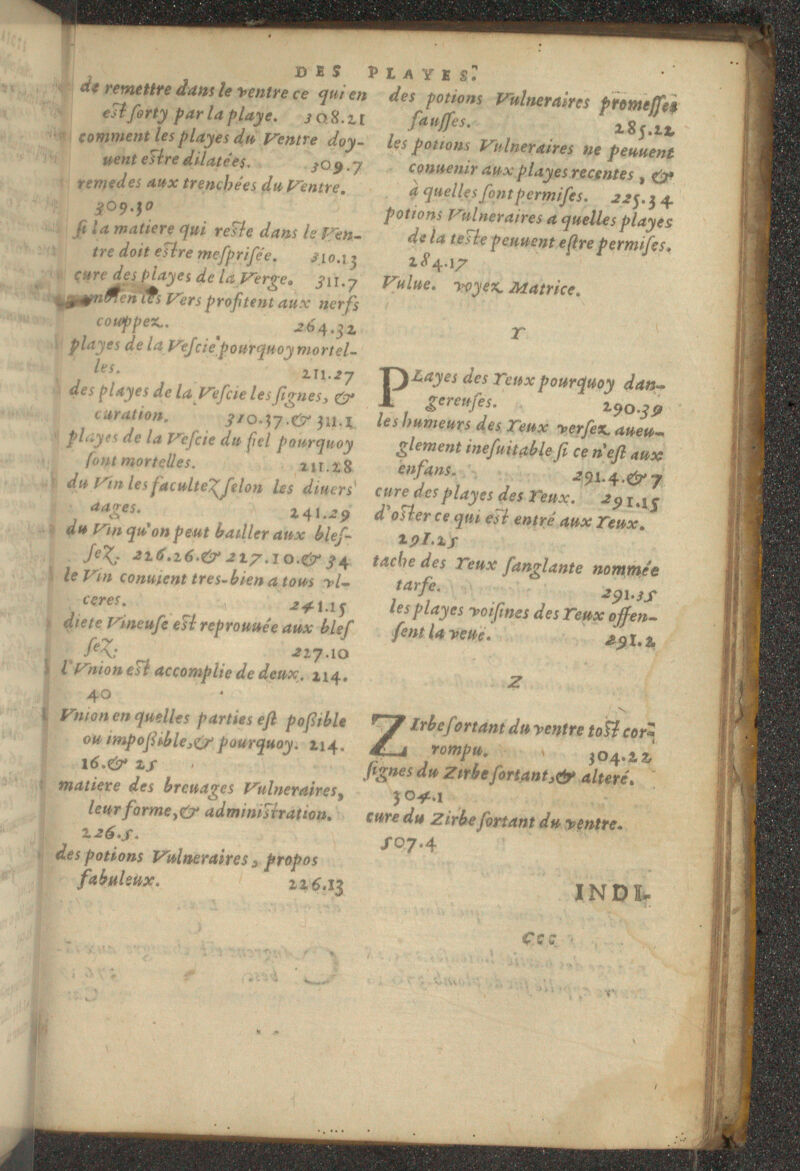 DES PLAYES.
de remettre dans le ventre ce qui en
est sorty par la playe. 308.21
comment les playes du Ventre doy-
uent estre dilatées. 309.7
remedes aux trenchées du Ventre.
309.30
si la matiere qui reste dans le Ven-
tre doit estre mesprisée. 310.13
cure des playes de la Verge. 311.7
Vers profitent aux nerfs
couppez. 264.32
playes de la Vescie pourquoy mortel-
les. 211.27
des playes de la Vescie les signes, &
curation. 310.37.& 311.1
playes de la Vescie du fiel pourquoy
sont mortelles. 211.28
du Vin les facultez selon les diuers
aages. 241.29
du Vin qu'on peut bailler aux bles-
sez. 216.26.& 217.10.& 34
le Vin conuient tres-bien a tous vl-
ceres. 241.15
diete Vineuse est reprouuée aux bles
sez. 217.10
l'Vnion est accomplie de deux. 214.
40
Vnion en quelles parties est possible
ou impossible,& pourquoy. 214.
16.& 25
matiere des breuages Vulneraires,
leur forme,& administration.
226.5.
des potions Vulneraires, propos
fabuleux. 226.13
des potions Vulneraires promesses
fausses. 285.22
les potions Vulneraires ne peuuent
conuenir aux playes recentes, &
à quelles sont permises. 225.34
potions Vulneraires a quelles playes
de la teste peuuent estre permises.
284.17
Vulue. voyez Matrice.
Y
PLayes des Yeux pourquoy dan-
gereuses. 290.39
les humeurs des Yeux versez aueu-
glement ineuitable si ce n'est aux
enfans. 291.4.& 7
cure des playes des Yeux. 291.15
d'oster ce qui est entré aux Yeux.
291.25
tache des Yeux sanglante nommée
tarse. 291.35
les playes voisines des Yeux offen-
sent la veuë. 291.2
Z
ZIrbe sortant du ventre tost cor-
rompu. 304.22
signes du Zirbe sortant,& alteré.
304.1
cure du Zirbe sortant du ventre.
507.4
INDI-
Ccc